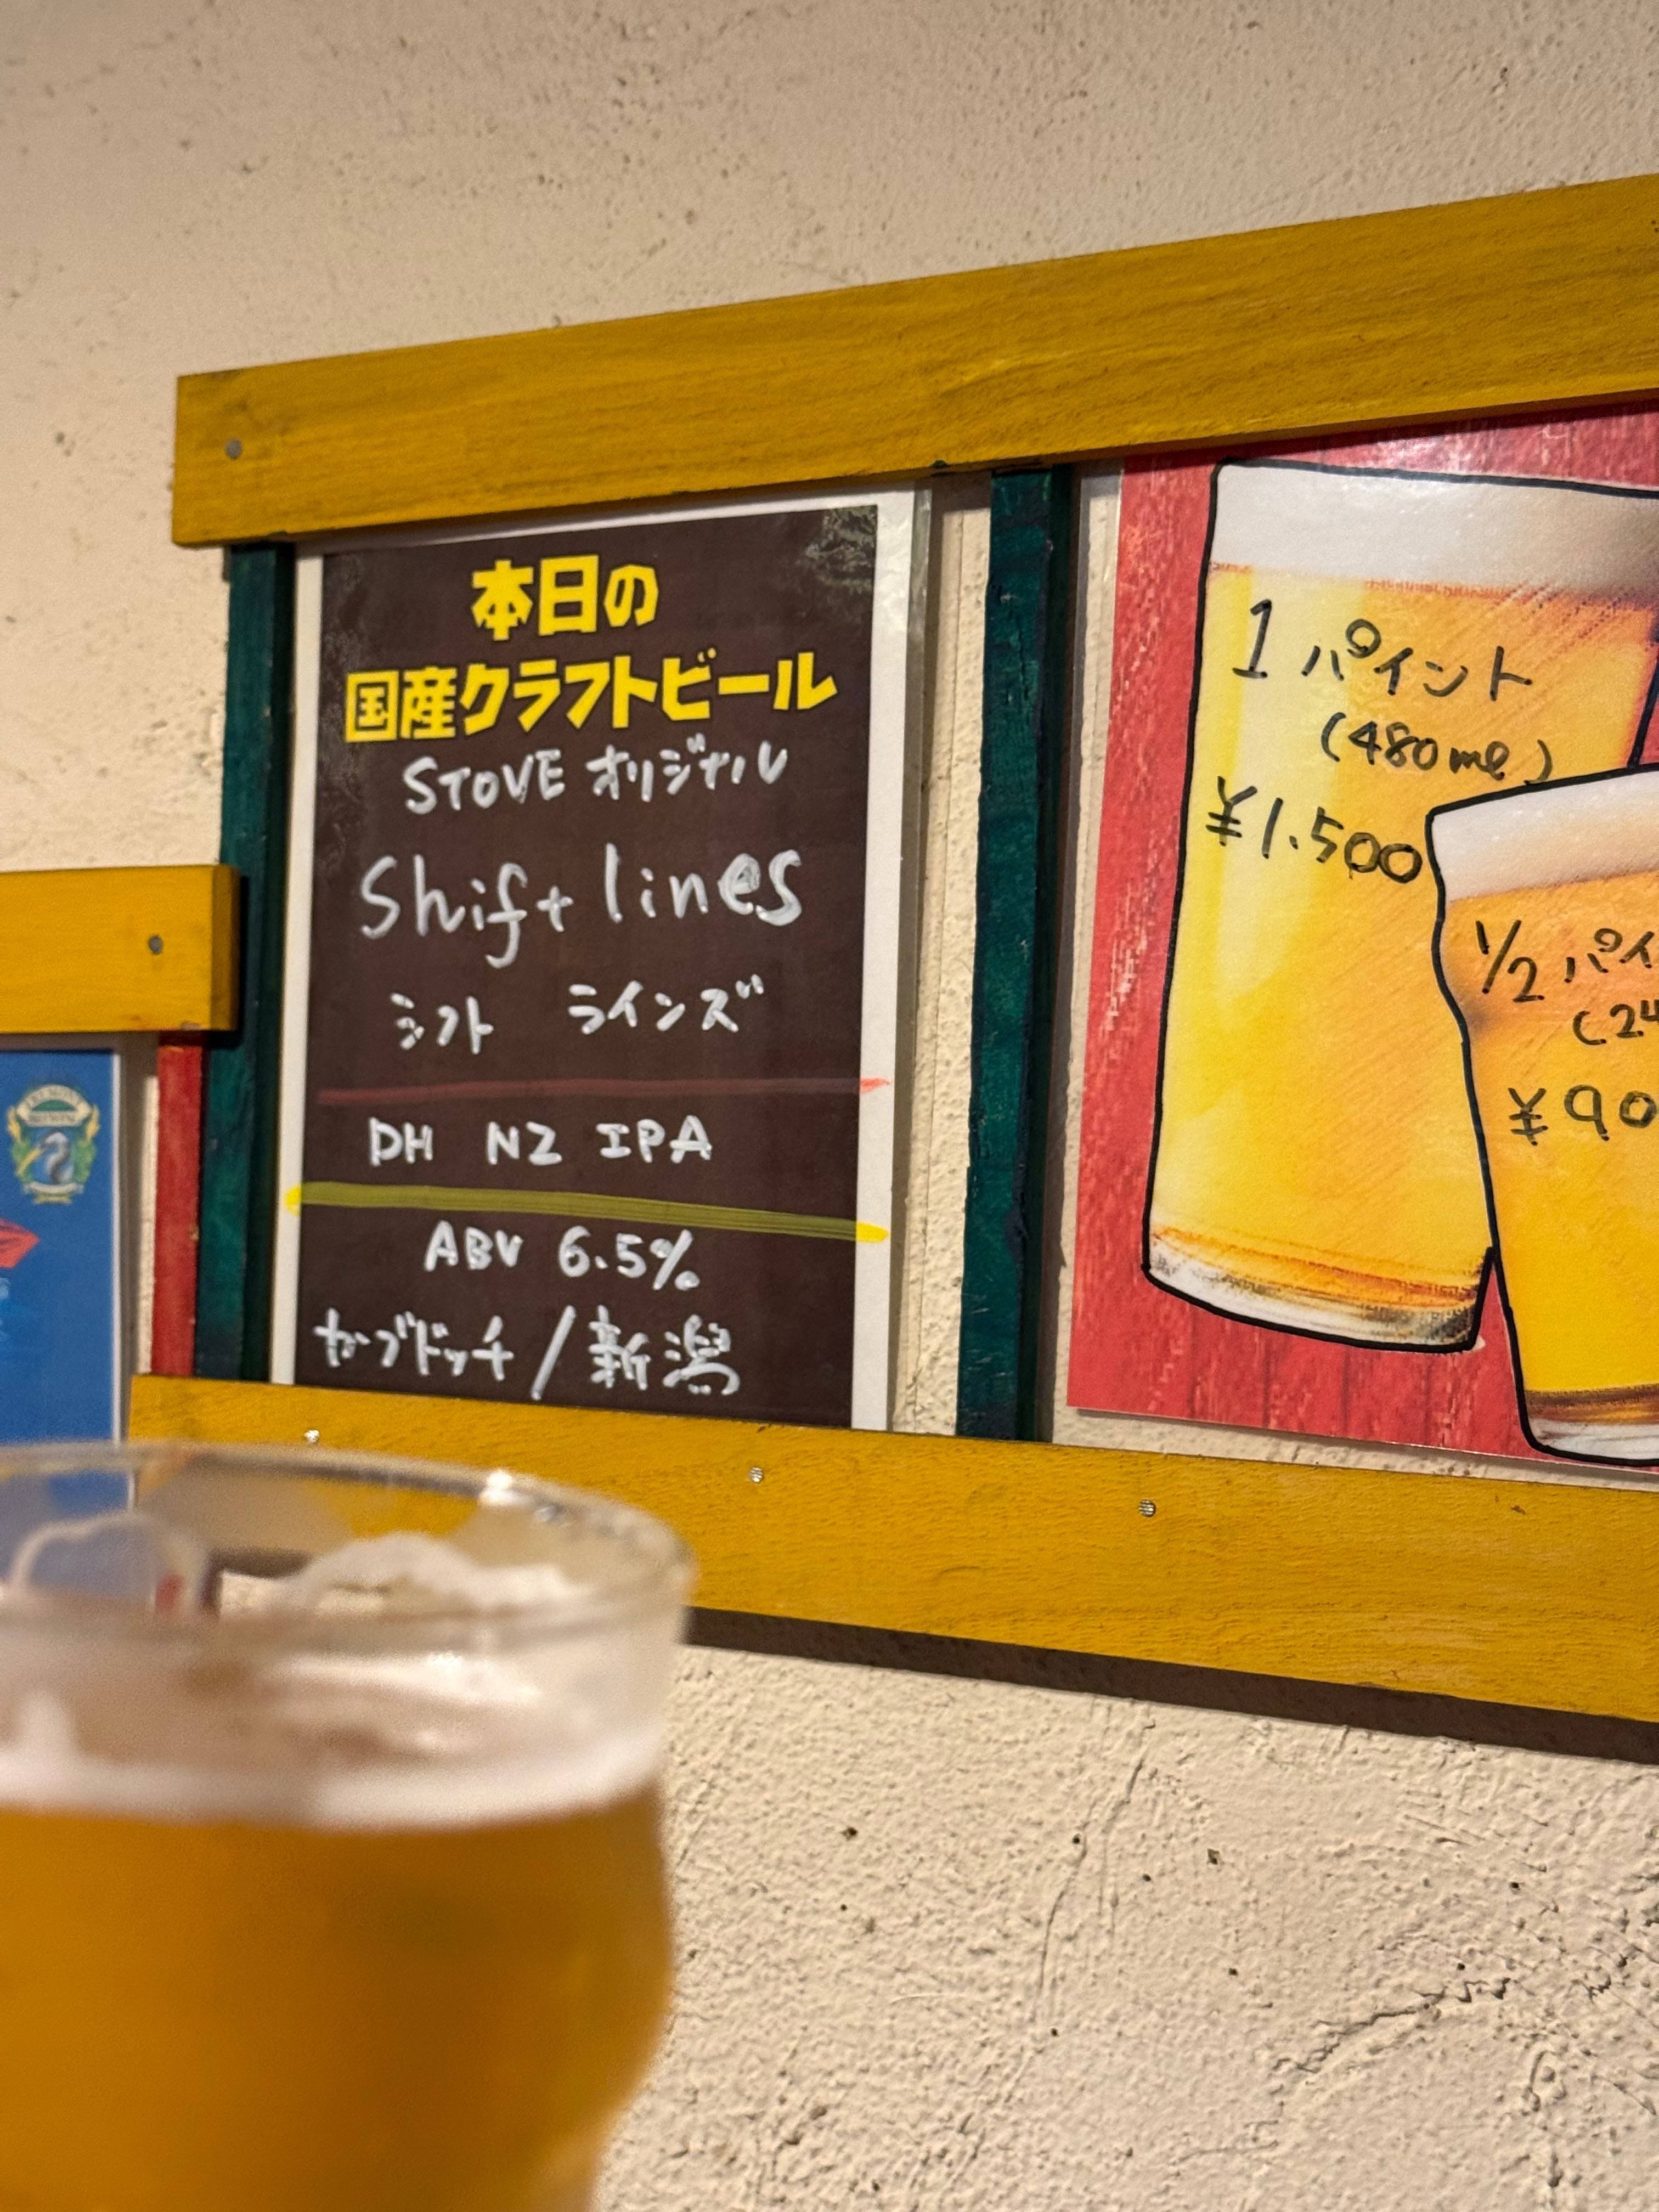 本日の
国産クラフトビール
STOVE オリジナル
Shift lines
シフト ラインズ
DH NZ IPA
ABV 6.5%
カーブドッチ/新潟
1 パイント
(480ml)
¥1.500
1/2 パイ
(24
¥90